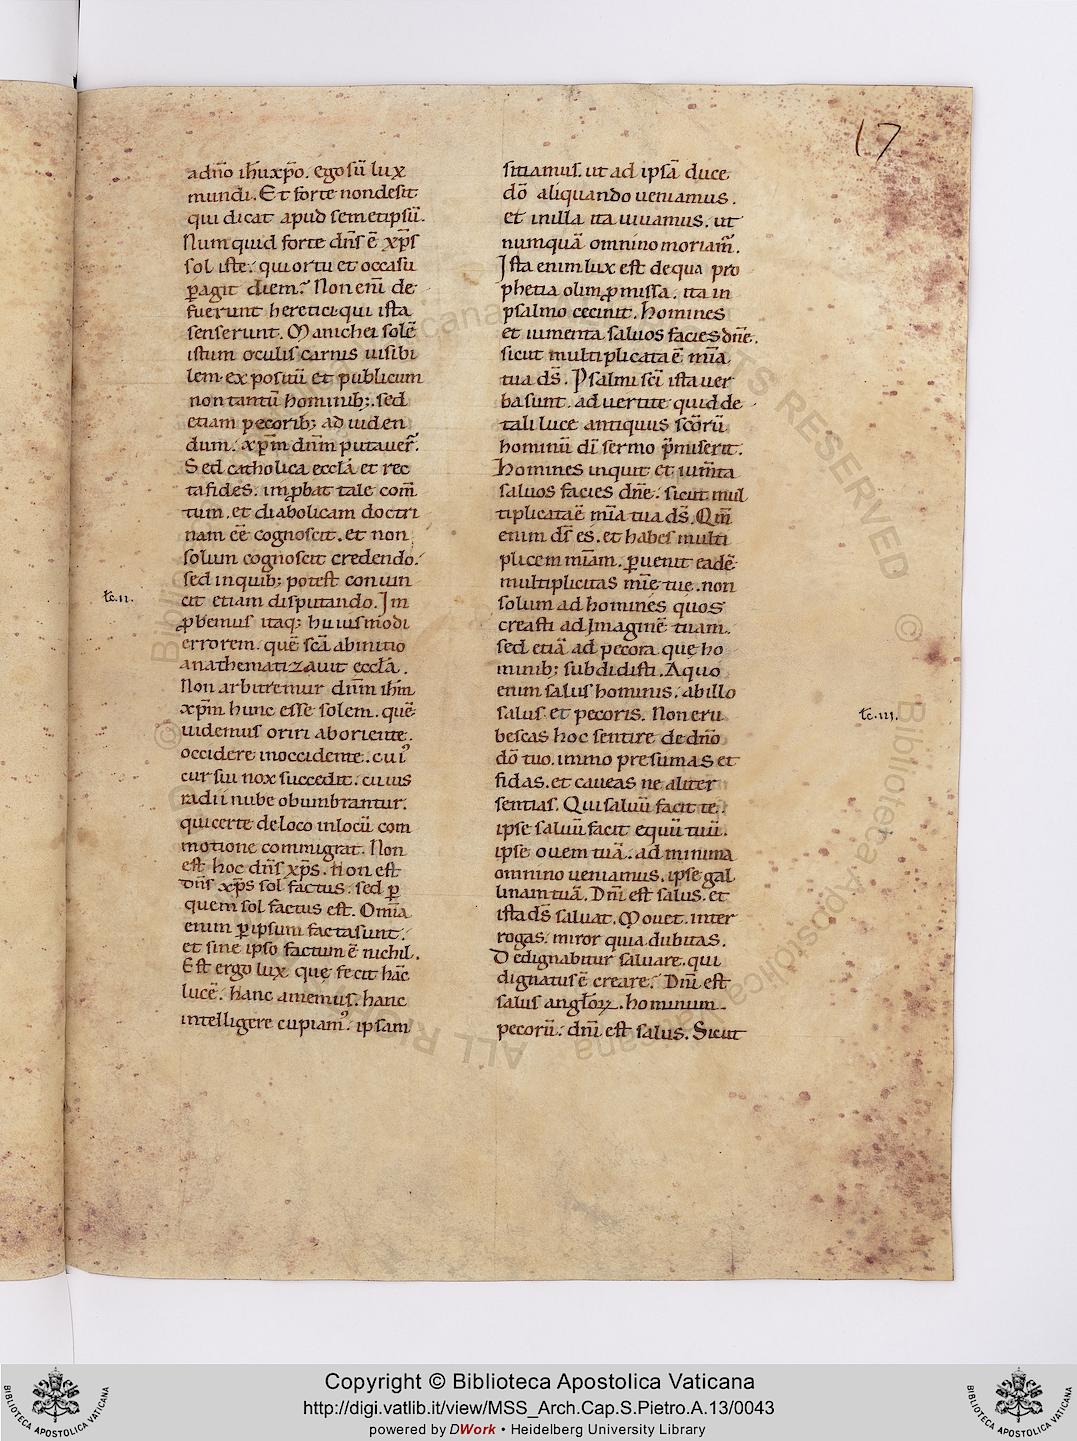 17
adn̄o ih̄uxp̄o. Ego sū lux
mundi. Et forte nondesit
qui dicat apud semetipsū.
Numquid forte dn̄s ē xp̄s
sol iste. qui ortu et occasu
p̄agit diem. Non eni de
fuerunt heretici qui ista
senserunt. Manichei solē
istum oculis carnis uisibi
lem expositū et publicum
non tantū hominib; sed
etiam pecorib; ad uiden
dum. xp̄m dn̄m putauer̄.
Sed catholica eccla et rec
ta fides. imp̄bat tale com̄
tum. et diabolicam doctri
nam eē cognoscit. et non
solum cognoscit credendo.
sed inquib; potest conuin
cit etiam disputando. Im
tc.II.
p̄bemus itaq; huiusmodi
errorem. quē scā abinitio
anathematizauit eccla.
Non arbitremur dnm ih̄m
xp̄m hunc esse solem. quē
uidemus oriri ab oriente.
occidere in occidente. cui
cursui nox succedit. cuius
radii nube obumbrantur.
qui certe de loco in locū com
motione commigrat. Non
est hoc dn̄s xp̄s. Non est
Dn̄s xp̄s sol factus. sed p̄
quem sol factus est. Omīa
enim p̄ ipsum facta sunt.
et sine ipso factum ē nichil.
Est ergo lux que fecit hāc
lucē. hanc amemus. hanc
intelligere cupiam'. ipsam
sitiamus. ut ad ipsā duce
dō aliquando ueniamus.
et inilla ita uiuamus. ut
numquā omnino moriam'.
Ista enim lux est dequa pro
phetia olim p̄missa. ita in
psalmo cecinit. Homines
et iumenta saluos facies dn̄e.
sicut multiplicata ē mīa
tua ds̄. Psalmi sci ista uer
ba sunt. aduertite quid de
tali luce antiquus scorū
hominū di sermo p̄miserit.
Homines inquit et iumta
saluos facies dn̄e. sicut mul
tiplicata ē mīa tua ds̄. Qm̄
enim ds̄ es. et habes multi
plicem mīam. p̄uenit eadē
multiplicitas mīe tue. non
solum ad homines quos
creasti ad Imaginē tuam.
sed etiā ad pecora que ho
minib; subdidisti. A quo
enim salus hominis. ab illo
salus et pecoris. Non eru
tc.III.
bescas hoc sentire de dn̄o
dō tuo. immo presumas et
fidas. et caueas ne aliter
sentias. Qui saluū facit te.
ipse saluū facit equū tuū.
ipse ouem tuā. ad minima
omnino ueniamus. ipse gal
linam tuā. Dni est salus. et
ista ds̄ saluat. Mouet. inter
rogas. miror quia dubitas.
Dedignabitur saluare. qui
dignatus ē creare. Dni est
salus anglorꝝ. hominum.
pecorū. dni est salus. Sicut
Copyright © Biblioteca Apostolica Vaticana
http://digi.vatlib.it/view/MSS_Arch.Cap.S.Pietro.A.13/0043
powered by DWork • Heidelberg University Library
BIBLIOTECA APOSTOLICA VATICANA
BIBLIOTECA APOSTOLICA VATICANA